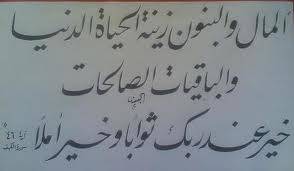 ألمال والبنون زينة الحياة الدنيا
والباقيات الصالحات
خير عند ربك ثوابا وخير أملاً
آية ٤٦
سورة الكهف